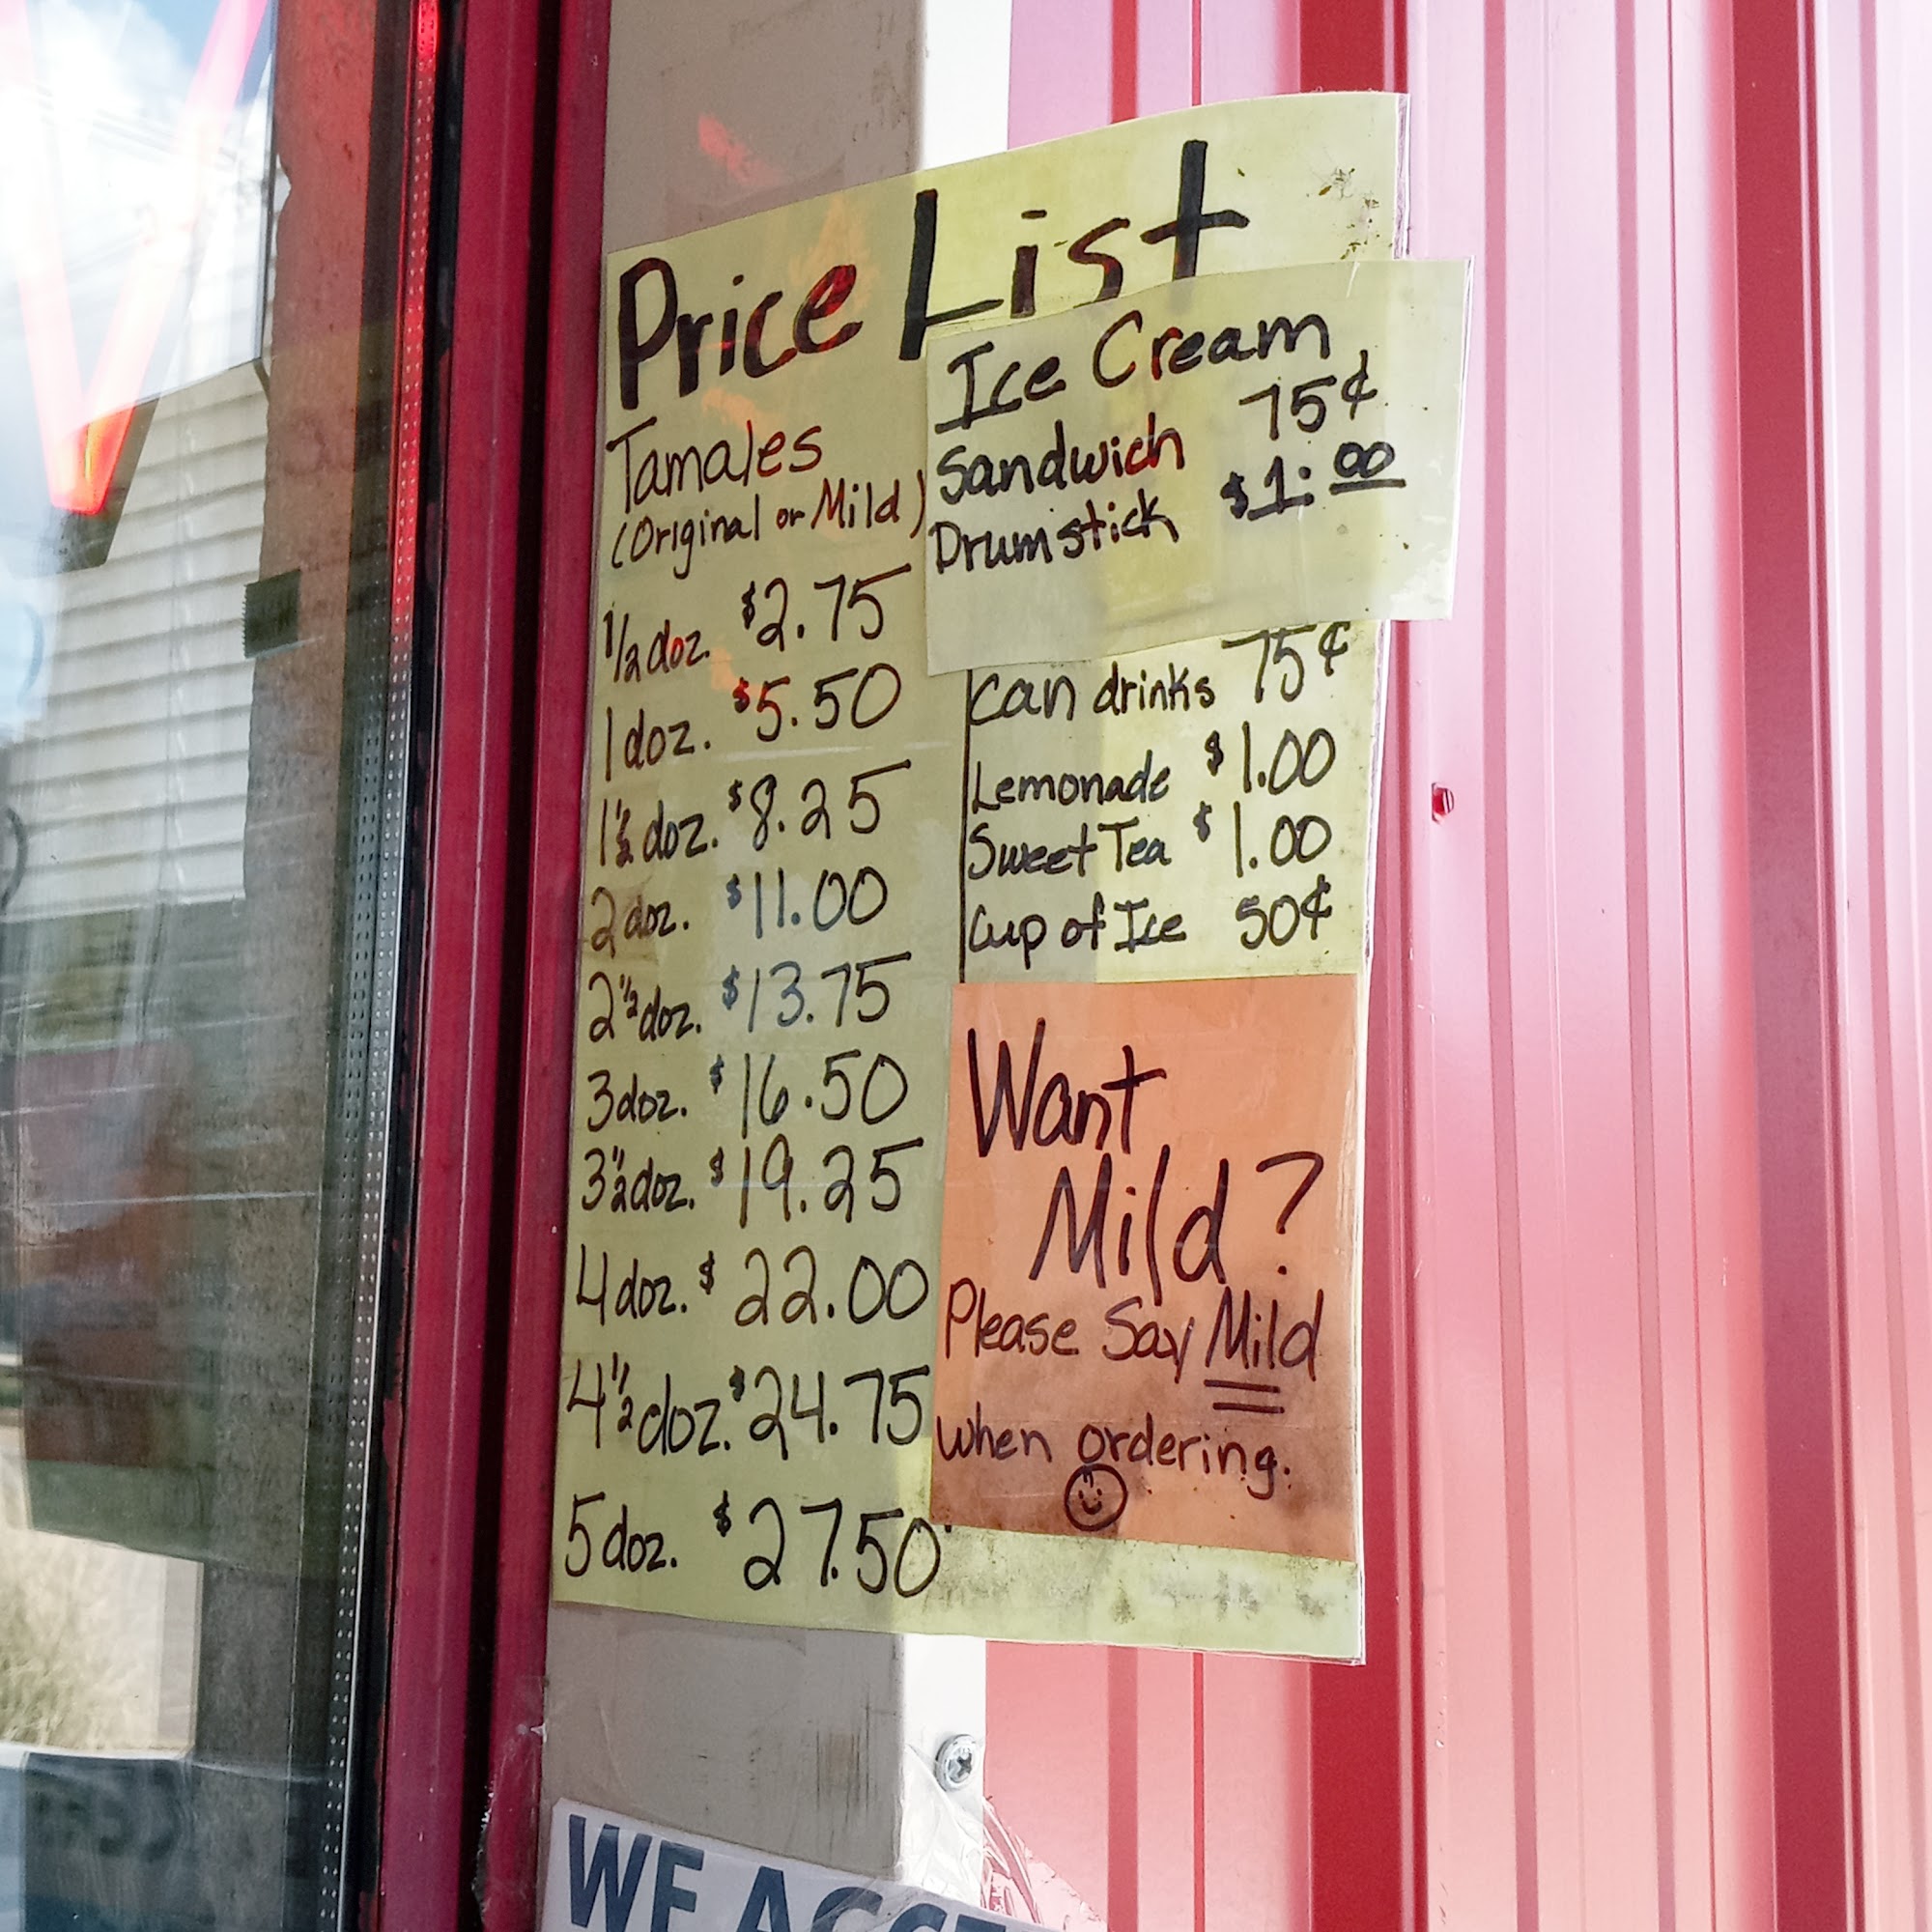 Price List
Tamales
(Original or Mild)
1/2 doz. $2.75
1 doz. $5.50
1 1/2 doz. $8.25
2 doz. $11.00
2 1/2 doz. $13.75
3 doz. $16.50
3 1/2 doz. $19.25
4 doz. $22.00
4 1/2 doz. $24.75
5 doz. $27.50
Ice Cream
Sandwich 75¢
Drumstick $1.00
Can drinks 75¢
Lemonade $1.00
Sweet Tea $1.00
Cup of Ice 50¢
Want
Mild?
Please Say Mild
when ordering.
WE